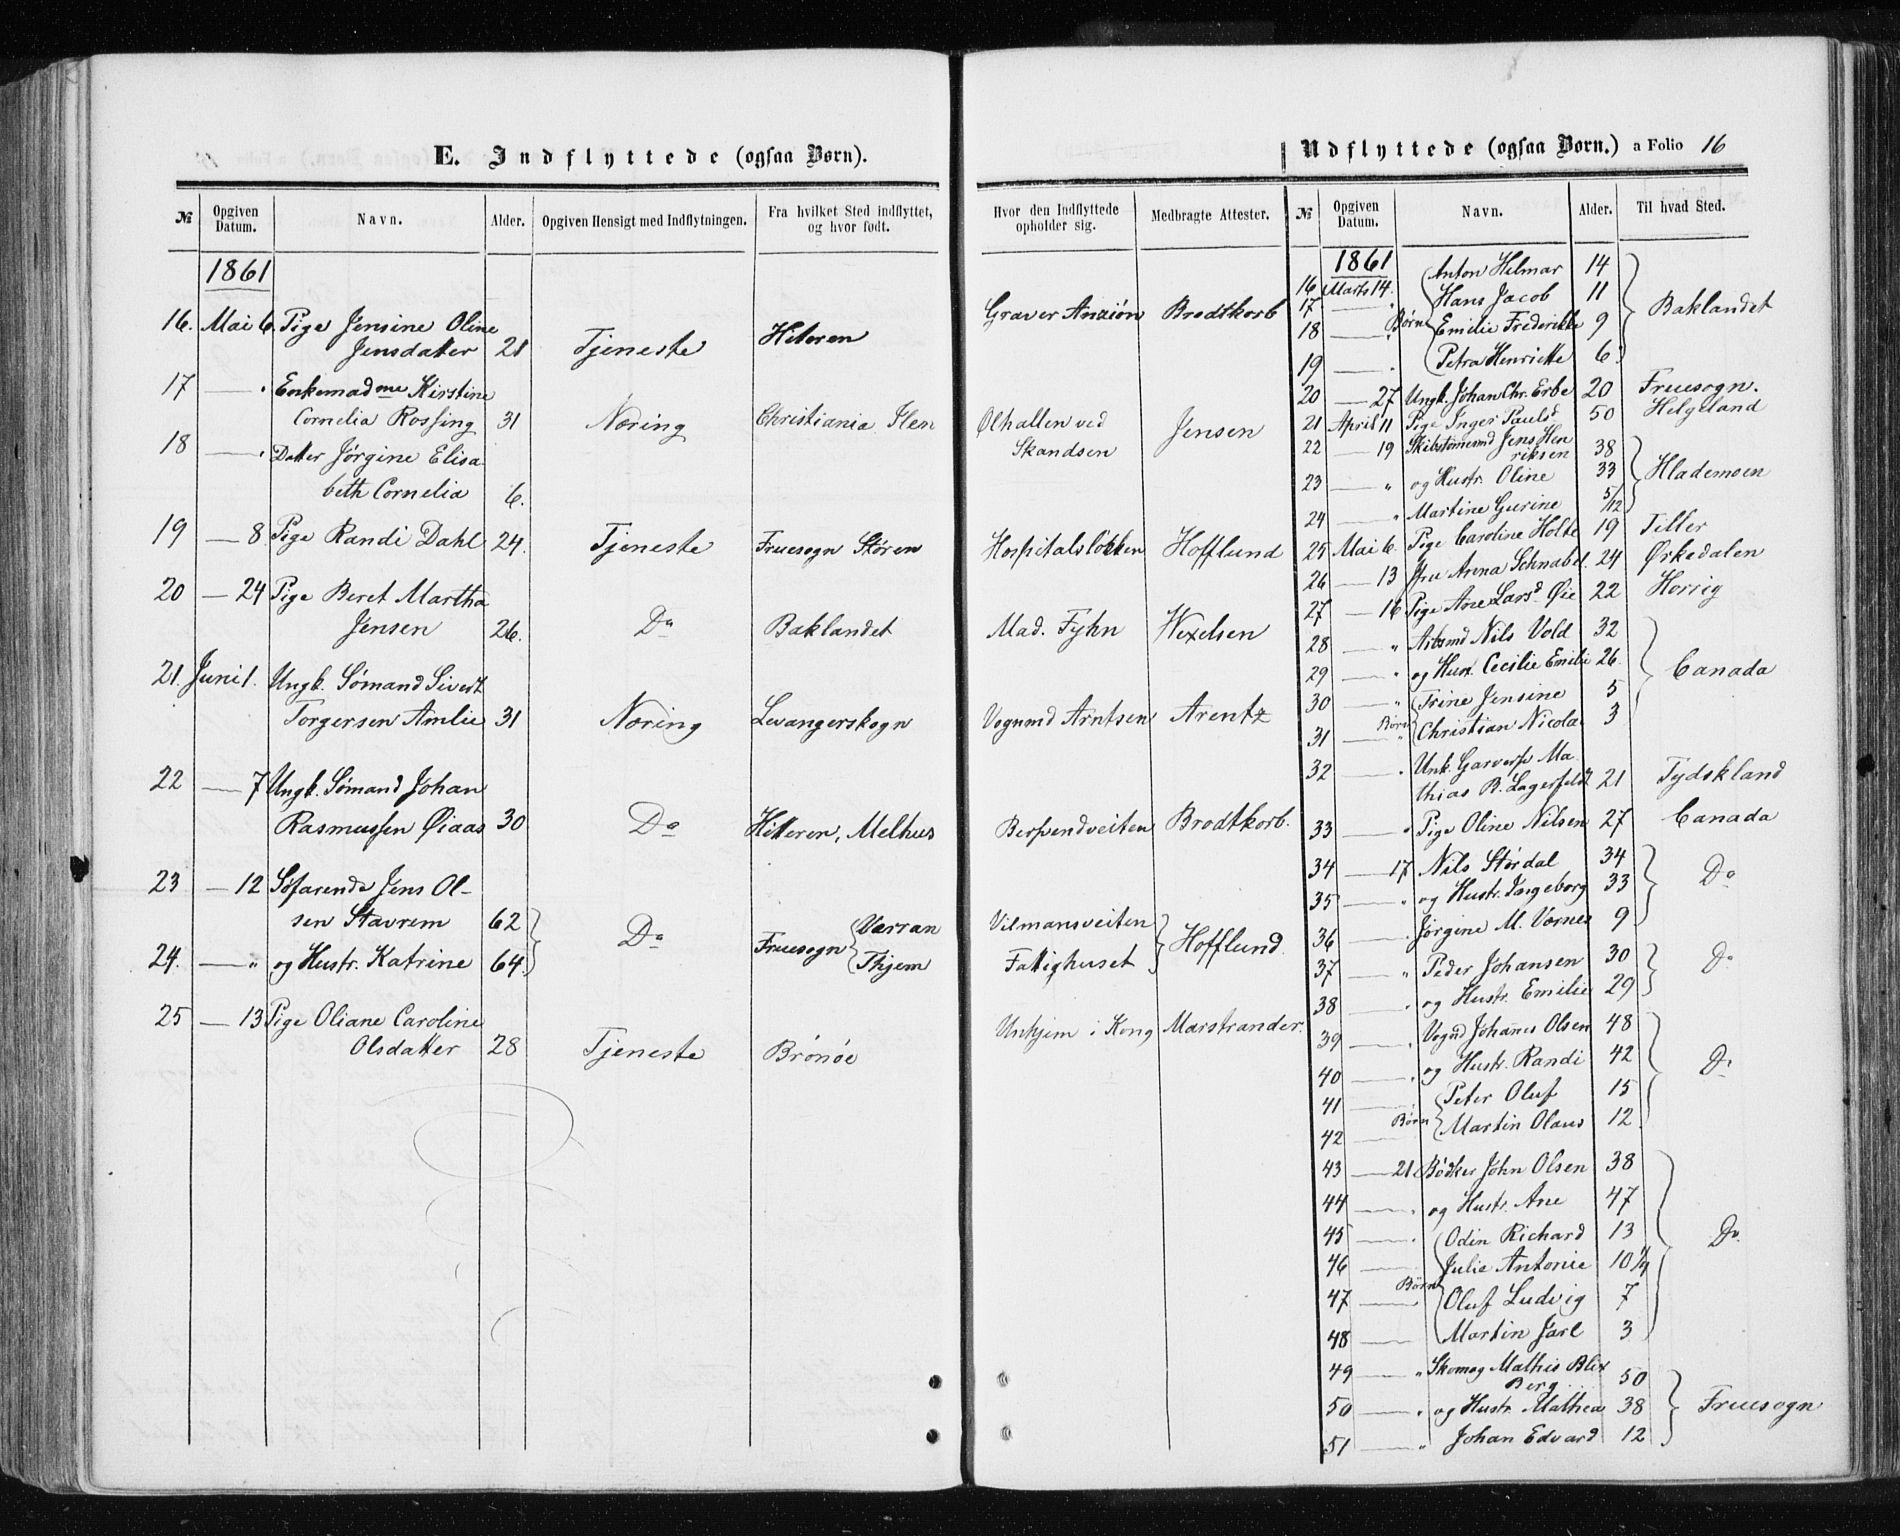 E. Indflyttede (ogsaa Børn).
№ Opgiven Datum. Navn. Alder. Opgiven Hensigt med Indflytningen. Fra hvilket Sted indflyttet, og hvor født.
1861
16. Mai 6. Pige Jensine Oline
Jensdatter 21 Tjeneste Hiteren
17 — " Enkemadme Kirstine
Cornelia Rossing 31 Næring Christiania Ilen
18 — " Datter Jørgine Elisa-
beth Cornelia 6.
19 — 8 Pige Randi Dahl 24. Tjeneste Fruesogn Støren
20 — 24 Pige Beret Martha
Jensen 26. Do Baklandet
21. Juni 1. Ungk. Sømand Sivert
Torgersen Amlie 31 Næring Levangerskogn
22 — 7 Ungk. Sømand Johan
Rasmussen Øiaas 30 Do Hitteren, Melhus
23 — 12 Søfarende Jens Ol-
sen Stavrem 62 Do Fruesogn Værran
24. — " og Hustr. Katrine 64 Thjem
25 — 13 Pige Oliane Caroline
Olsdatter 28 Tjeneste Brönöe
Udflyttede (ogsaa Børn.) a Folio 16
Hvor den Indflyttede opholder sig. Medbragte Attester. № Opgiven Datum. Navn. Alder. Til hvad Sted.
Graver Anziön Brodtkorb
Ølhallen ved
Skandsen Jensen
Hospitalsløkken Hofflund
Mad. Fyhn Wexelsen
Vognmd Arntsen Arentz
Berpendveiten Brodtkorb.
Vilmansveiten
Fattighuset Hofflund.
i Kong Marstrander.
1861
16 Marts 14. Anton Helmar 14
17 " Hans Jacob 11 Baklandet
18 " Børn Emilie Frederikke 9
19 — " Petra Henriette 6
20 — 27 Ungk. Johan Chr. Erbe 20 Fruesogn.
21 April 11 Pige Inger Paulsd 50 Helgeland
22 — 19 Skibstømmmd Jens Hen
riksen 38
23 — " og Hustr. Oline 33 Hlademoen
24 — " Martine Gurine 5/12
25 Mai 6. Pige Caroline Holte 19 Tiller
26 — 13 Jfru Anna Schnabel 24 Ørkedalen
27 — 16 Pige Ane Larsd. Øie 22 Horrig
28 " Arbsmd Nils Vold 32
29 — " og Hust. Cecilie Emilie 26. Canada
30 — " Trine Jensine 5
31 — " Børn Christian Nicolai 3
32 — " Unk. Garversv Ma-
thias B. Lagerfeldt 21 Tydskland
33 — " Pige Oline Nilsen 27 Canada
34 — 17 Nils Størdal 34
35 — " og Hustr. Ingeborg 33 Do
36 — " Jørgine M. Værnes 9
37 — " Peder Johansen 30 Do
38 — " og Hustr. Emilie 29
39 — " Vognd Johannes Olsen 48
40 — " og Hustr. Randi 42 Do
41 — Peter Oluf 15
42 — Børn Martin Olaus 12
43 — 21 Bödker John Olsen 38
44 — " og Hustr. Ane 47
45 — " Odin Richard 13 Do
46 — Julie Antonie 10 1/4
47 — Børn Oluf Ludvig 7
48 — Martin Jarl 3
49 — " Skomag Mathis Blix
Berg 50
50 — " og Hustr. Mathea 38 Fruesogn
51 — " Johan Edvard 12